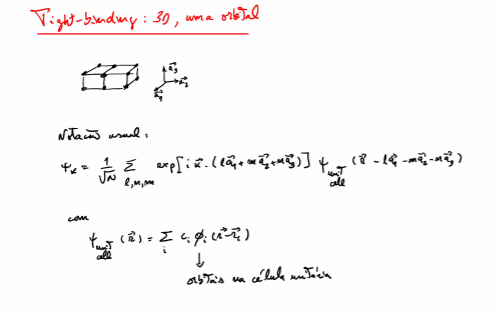 Tight-binding: 3D, uma orbital
a⃗₃
a⃗₂
a⃗₁
Notação usual:
Ψₖ = 1/√N Σ_{l,m,n} exp[i k⃗·(la⃗₁+ma⃗₂+na⃗₃)] Ψ_{unit cell}(r⃗-la⃗₁-ma⃗₂-na⃗₃)
com
Ψ_{unit cell}(r⃗) = Σ_i c_i ϕ_i(r⃗-r⃗_i)
↓
orbitais na célula unitária